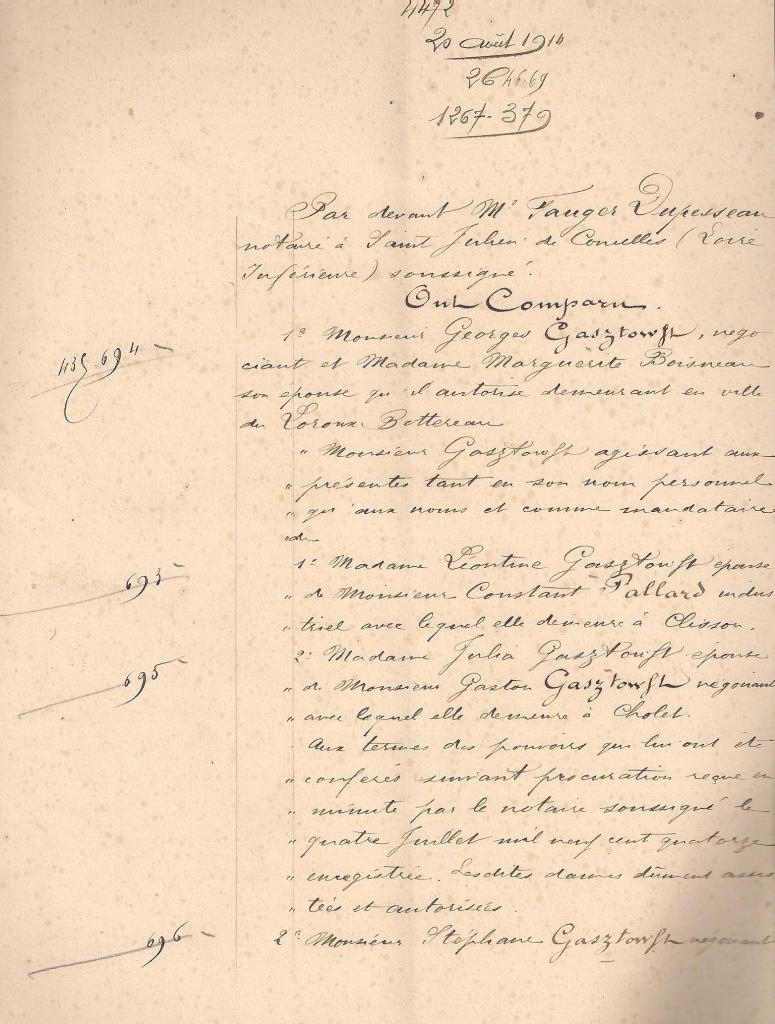 4472
20 août 1914
1267-379
Par devant Me Fauger Dupesseau
notaire à Saint Julien de Concelles (Loire
Inférieure) soussigné.
Ont Comparu.
1º Monsieur Georges Gasztowtt, négo
435 694
ciant et Madame Marguerite Boisneau
son épouse qu'il autorise demeurant en ville
du Loroux Bottereau
" Monsieur Gasztowtt agissant aux
" présentes tant en son nom personnel
" qu'aux noms et comme mandataire
" de
1º Madame Léontine Gasztowtt épouse
693
" de Monsieur Constant Pallard indus
" triel avec lequel elle demeure à Clisson.
2º Madame Julia Gasztowtt épouse
695
" de Monsieur Gaston Gasztowtt négociant
" avec lequel elle demeure à Cholet.
Aux termes des pouvoirs qui lui ont été
" conférés suivant procuration reçue en
" minute par le notaire soussigné le
" quatre Juillet mil neuf cent quatorze
" enregistrée. Lesdites dames dûment assis
" tées et autorisées.
696
2º Monsieur Stéphane Gasztowtt négociant